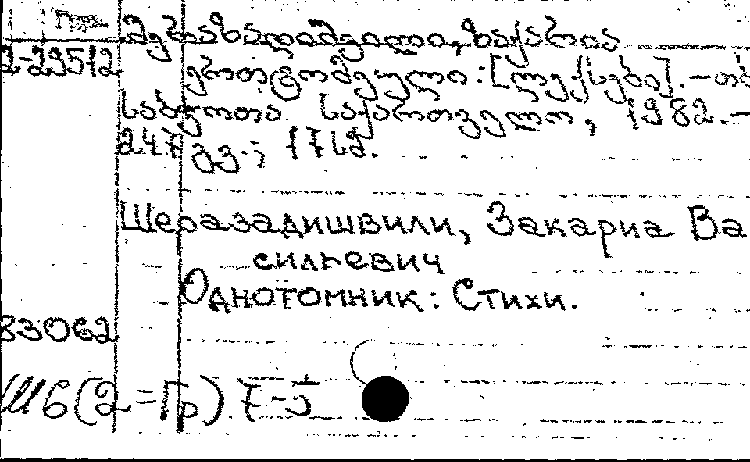 Гр.
შერაზადიშვილი, ზაქარია
2-23512
ერთტომეული: [ლექსები]. – თბ
საბჭოთა საქართველო, 1982. –
247 გვ.; 17 სმ.
Шеразадишвили, Закариа Ва
сильевич
Однотомник: Стихи.
83062
Ш6(2=Гр)7-5